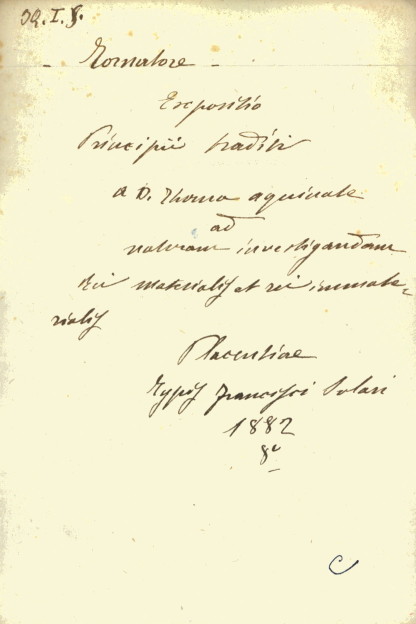 32. I. 8.
- Tornatore -
Expositio
Principii traditi
a D. Thoma aquinate
ad
naturam investigandam
Rei materialis et rei immate-
rialis
Placentiae
Typis Francisci Solari
1882
8º
C